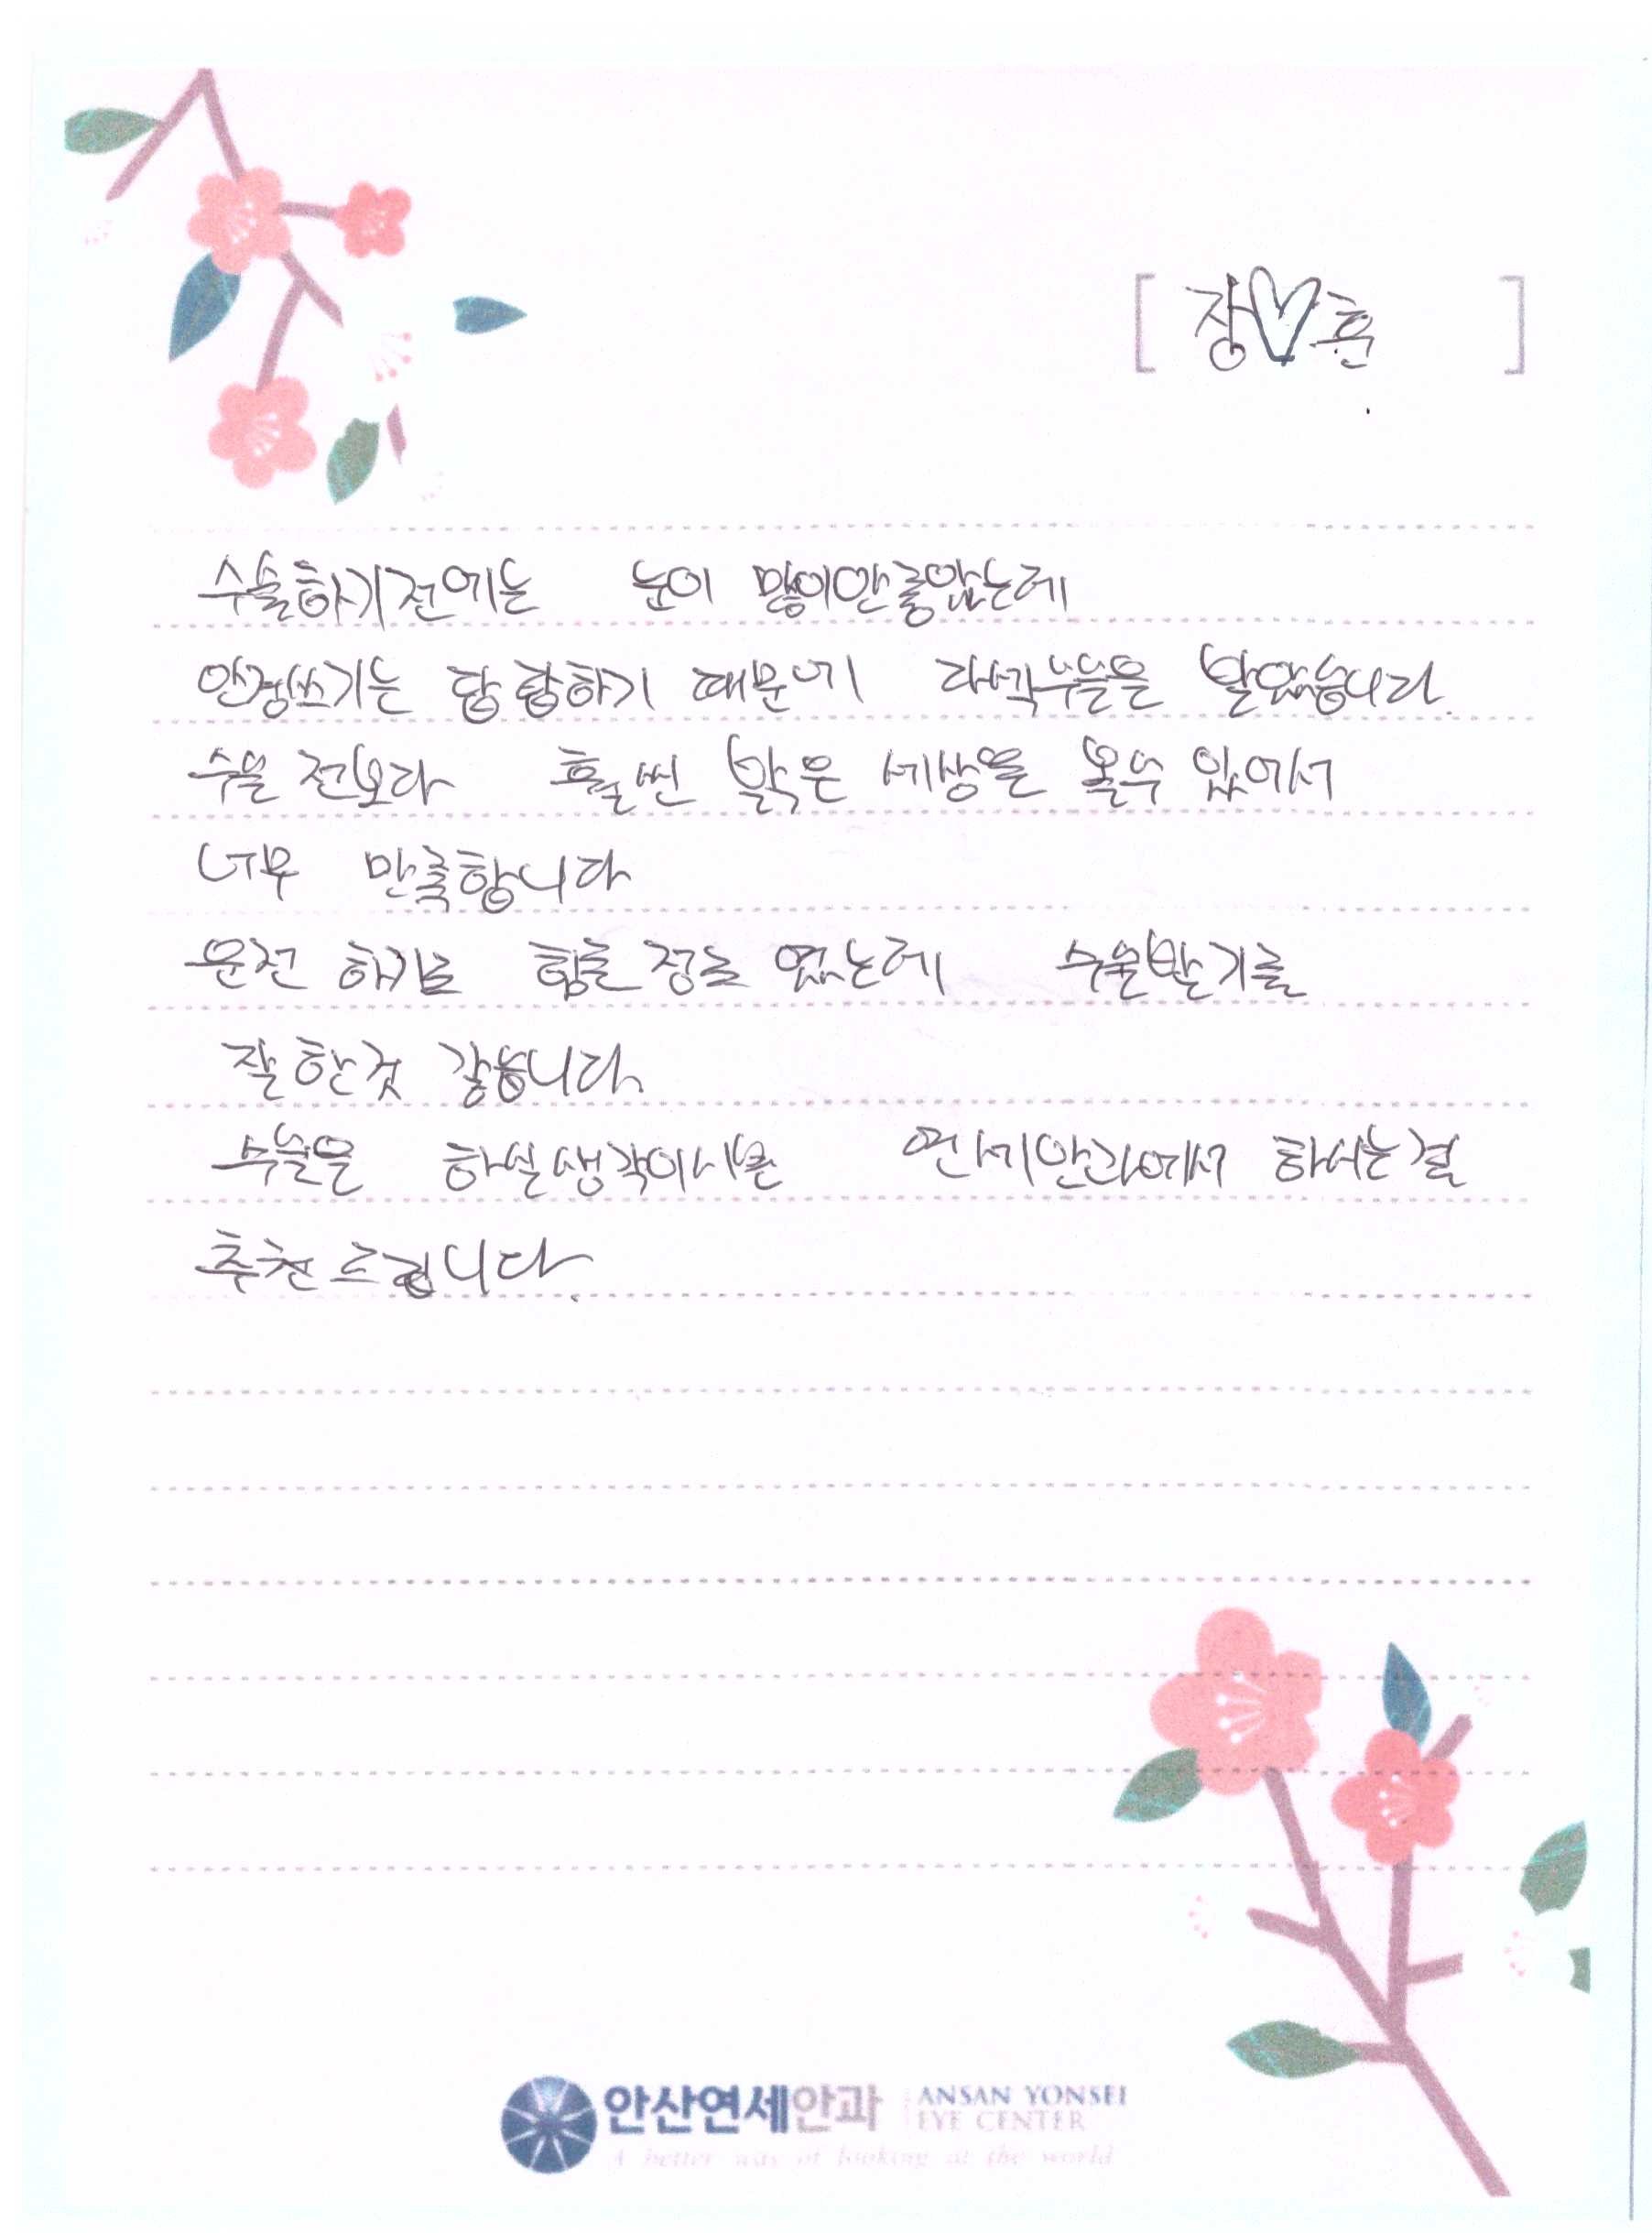 [ 장♡훈 ]
수술하기전에는 눈이 많이안좋았는데
안경쓰기는 답답하기 때문에 라섹수술을 받았습니다.
수술 전보다 훨씬 밝은 세상을 볼수 있어서
너무 만족합니다
운전 하기도 힘들 정도 였는데 수술받기를
잘한것 같습니다.
수술을 하실생각이시면 연세안과에서 하시는걸
추천드립니다.
안산연세안과 ANSAN YONSEI
EYE CENTER
A better way of looking at the world